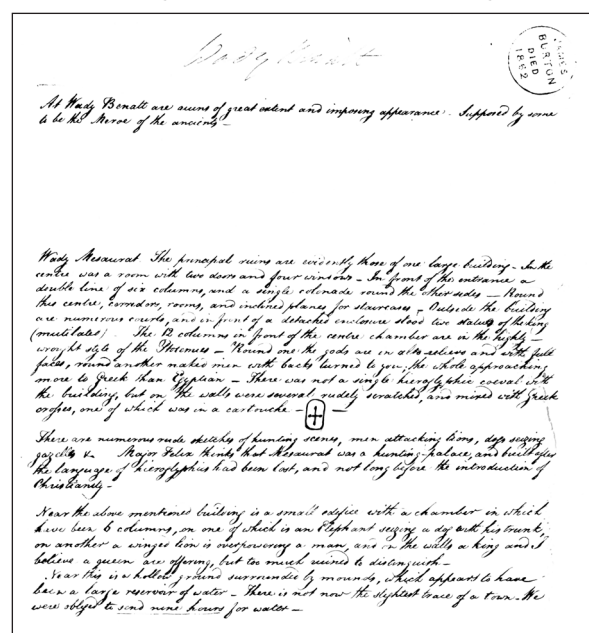 Wady Benatt
JAMES
BURTON
DIED
1862
At Wady Benatt are ruins of great extent and imposing appearance. Supposed by some
to be the Meroe of the ancients —
Wady Mesaurat The principal ruins are evidently those of one large building - In the
centre was a room with two doors and four windows - In front of the entrance a
double line of six columns, and a single colonade round the other sides — Round
this centre, corredors, rooms, and inclined planes for staircases - Outside the building
are numerous courts, and in front of a detached enclosure stood two statues of the king
(mutilated) . The 12 columns in front of the centre chamber are in the highly —
wrought style of the Ptolemies — Round one the gods are in alto relievo and with full
faces, round another naked men with backs turned to you, the whole approaching
more to Greek than Egyptian — There was not a single hieroglyphic coeval with
the building, but on the walls were several rudely scratched, and mixed with Greek
crosses, one of which was in a cartouche —
There are numerous rude sketches of hunting scenes, men attacking lions, dogs seizing
gazelles &. Major Felix thinks that Mesaurat was a hunting-palace, and built after
the language of hieroglyphics had been lost, and not long before the introduction of
Christianity -
Near the above mentioned building is a small edifice with a chamber in which
have been 6 columns, on one of which is an Elephant seizing a dog with his trunk,
on another a winged lion is overpowering a man, and on the walls a king and I
believe a queen are offering, but too much ruined to distinguish —
Near this is a hollow ground surrounded by mounds, which appears to have
been a large reservoir of water - There is not now the slightest trace of a town - We
were obliged to send nine hours for water —